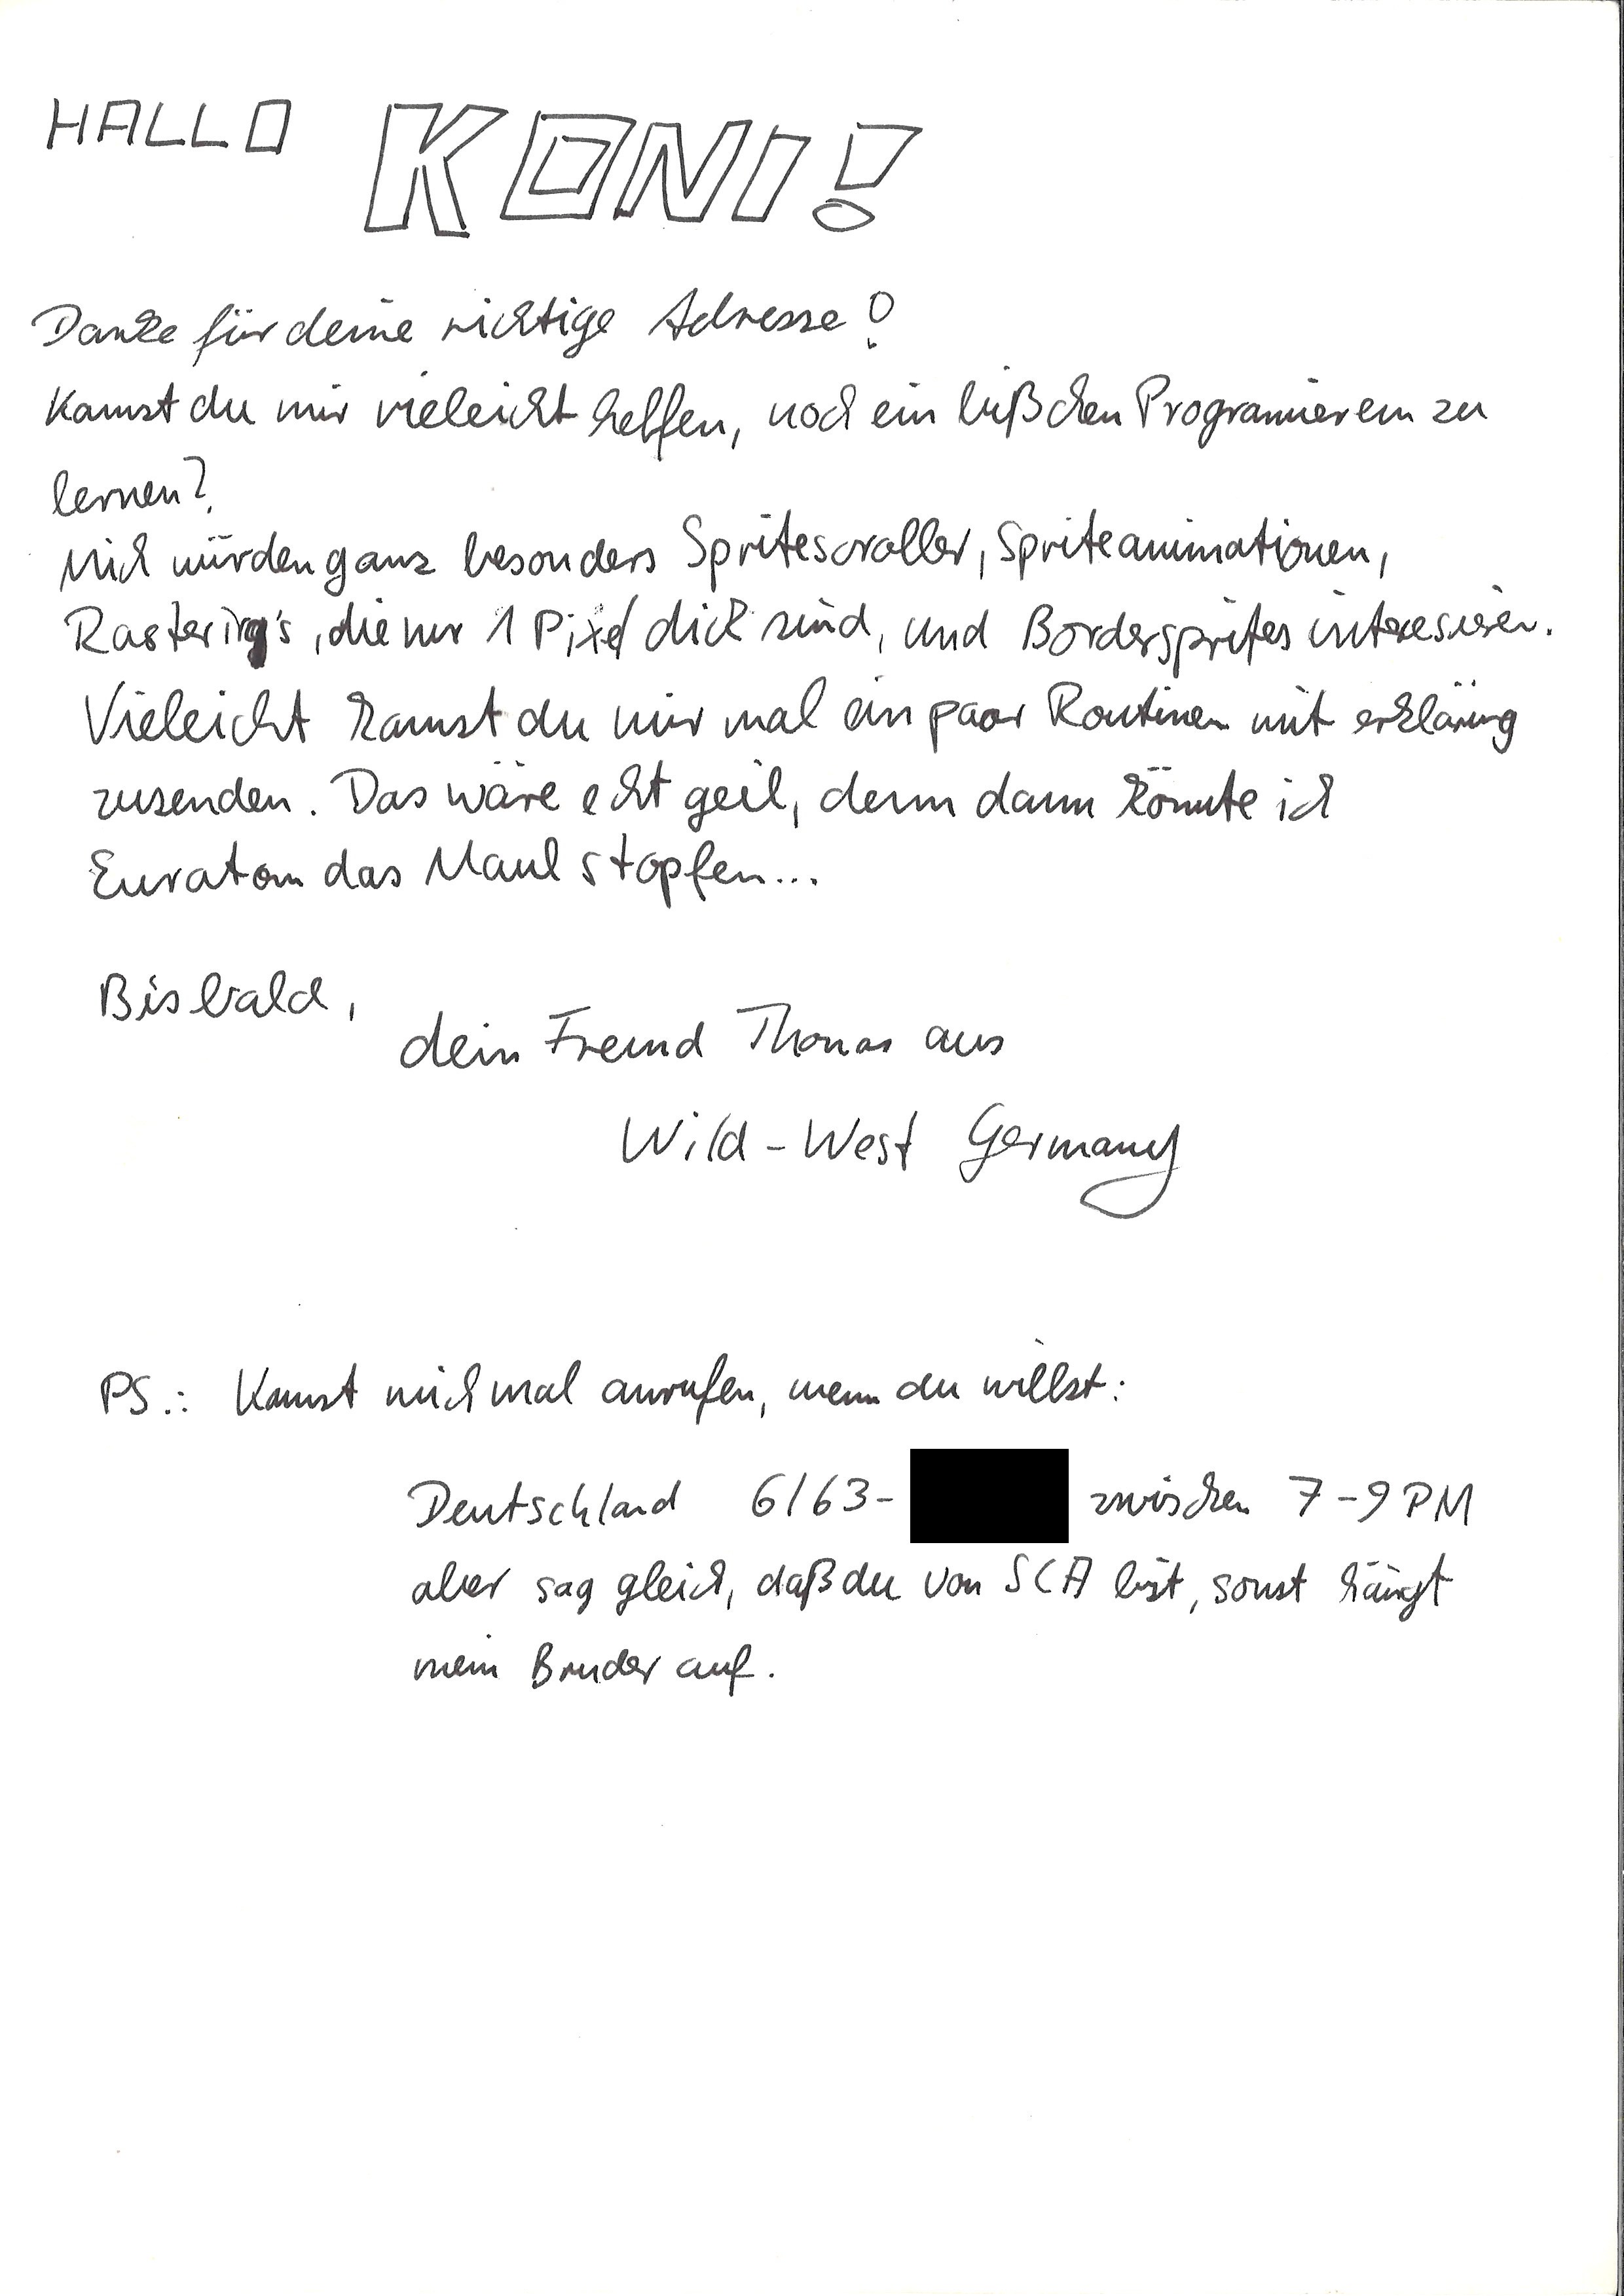 HALLO KONI!
Danke für deine richtige Adresse!
Kannst du mir vieleicht helfen, noch ein bißchen Programmieren zu
lernen?
Mich würden ganz besonders Spritescroller, Spriteanimationen,
Rasterirq's, die nur 1 Pixel dick sind, und Bordersprites interesieren.
Vieleicht kannst du mir mal ein paar Routinen mit erklärung
zusenden. Das wäre echt geil, denn dann könnte ich
Euratom das Maul stopfen...
Bis bald,
dein Freund Thomas aus
Wild-West Germany
PS.: Kannst mich mal anrufen, wenn du willst:
Deutschland 6163- zwischen 7-9 PM
aber sag gleich, daß du von SCA bist, sonst hängt
mein Bruder auf.